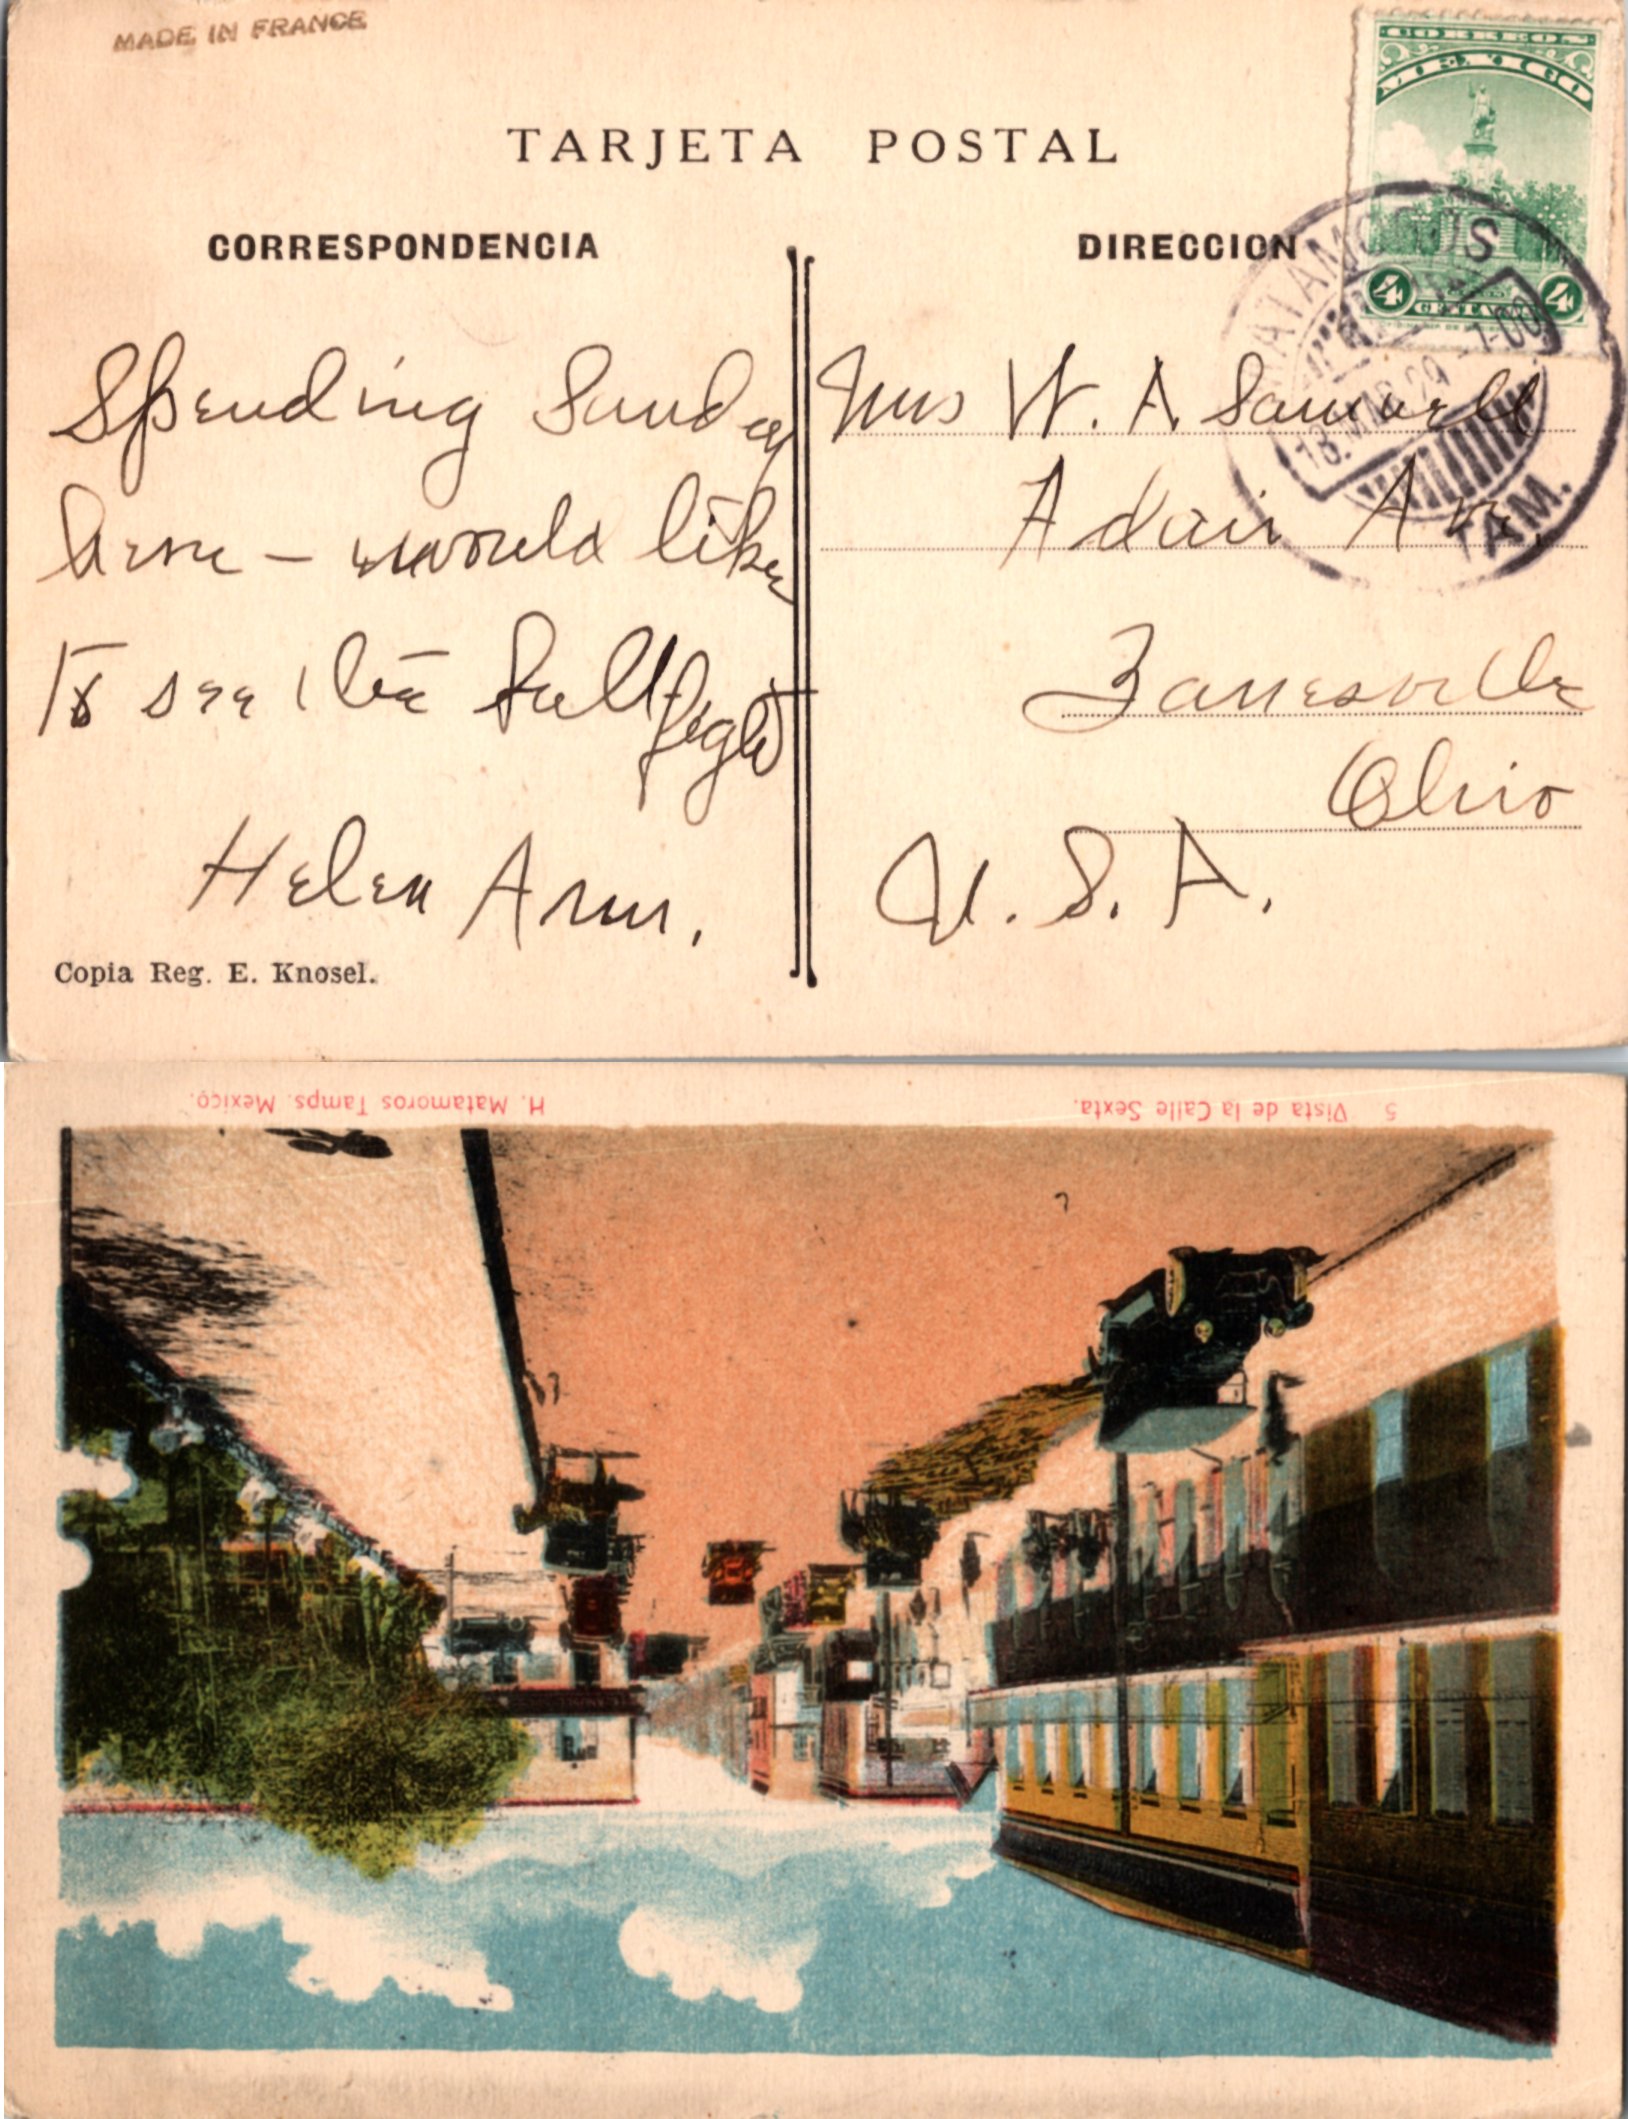 MADE IN FRANCE
TARJETA POSTAL
CORREOS
MEXICO
4 CENTAVOS 4
CORRESPONDENCIA
DIRECCION
MATAMOROS
18.MAR.29 -7-00
TAM.
Spending Sunday
here - would like
to see the bull
fight
Helen Ann.
Mrs W. A. Samuell
Adair Ave.
Zanesville
Ohio
U. S. A.
Copia Reg. E. Knosel.
5 Vista de la Calle Sexta.
H. Matamoros Tamps. Mexico.